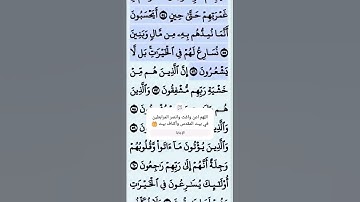 غَمْرَتِهِمْ حَتَّىٰ حِينٍ ٥٤ أَيَحْسَبُونَ
أَنَّمَا نُمِدُّهُم بِهِۦ مِن مَّالٍ وَبَنِينَ
٥٥ نُسَارِعُ لَهُمْ فِى ٱلْخَيْرَٰتِ ۚ بَل لَّا
يَشْعُرُونَ ٥٦ إِنَّ ٱلَّذِينَ هُم مِّنْ
خَشْيَةِ رَبِّهِم مُّشْفِقُونَ ٥٧ وَٱلَّذِينَ
هُم
اللهم وانصر المرابطين
في بيت المقدس وأكناف بيت
وَٱلَّذِينَ
وَٱلَّذِينَ يُؤْتُونَ مَآ ءَاتَوا۟ وَّقُلُوبُهُمْ
وَجِلَةٌ أَنَّهُمْ إِلَىٰ رَبِّهِمْ رَٰجِعُونَ ٦٠
أُو۟لَٰٓئِكَ يُسَٰرِعُونَ فِى ٱلْخَيْرَٰتِ